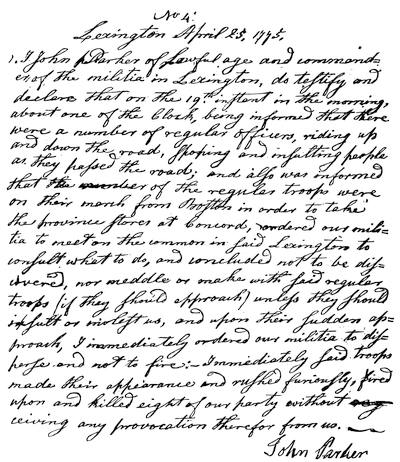 No 4:
Lexington April 25, 1775,
I John Parker of Lawful age and command-
er, of the militia in Lexington, do testify and
declare that on the 19th instent in the morning,
about one of the Clock, being informed that there
were a number of regular officers, riding up
and down the road, stoping and insulting people
as they passed the road; and also was informed
that the number of the regular troops were
on their march from Boston in order to take
the province stores at Concord, ordered our mili-
tia to meet on the common in said Lexington to
consult what to do, and concluded not to be dis-
covered, nor meddle or make with said regular
troops (if they should approach) unless they should
insult or molest us, and upon their sudden ap-
proach, I immediately ordered our militia to dis-
perse and not to fire:—Immediately said troops
made their appearance and rushed furiously, fired
upon and killed eight of our party without re-
ceiving any provocation therefor from us.—
John Parker